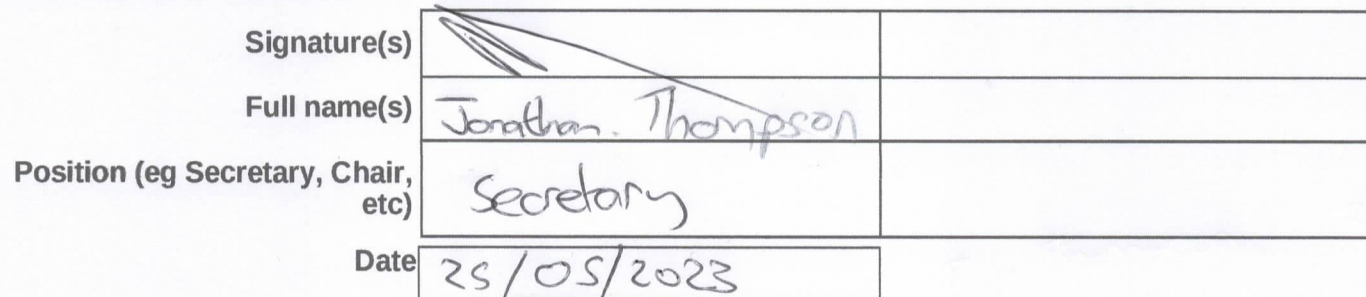 Signature(s)
Full name(s) Jonathan. Thompson
Position (eg Secretary, Chair, etc) Secretary
Date 25/05/2023